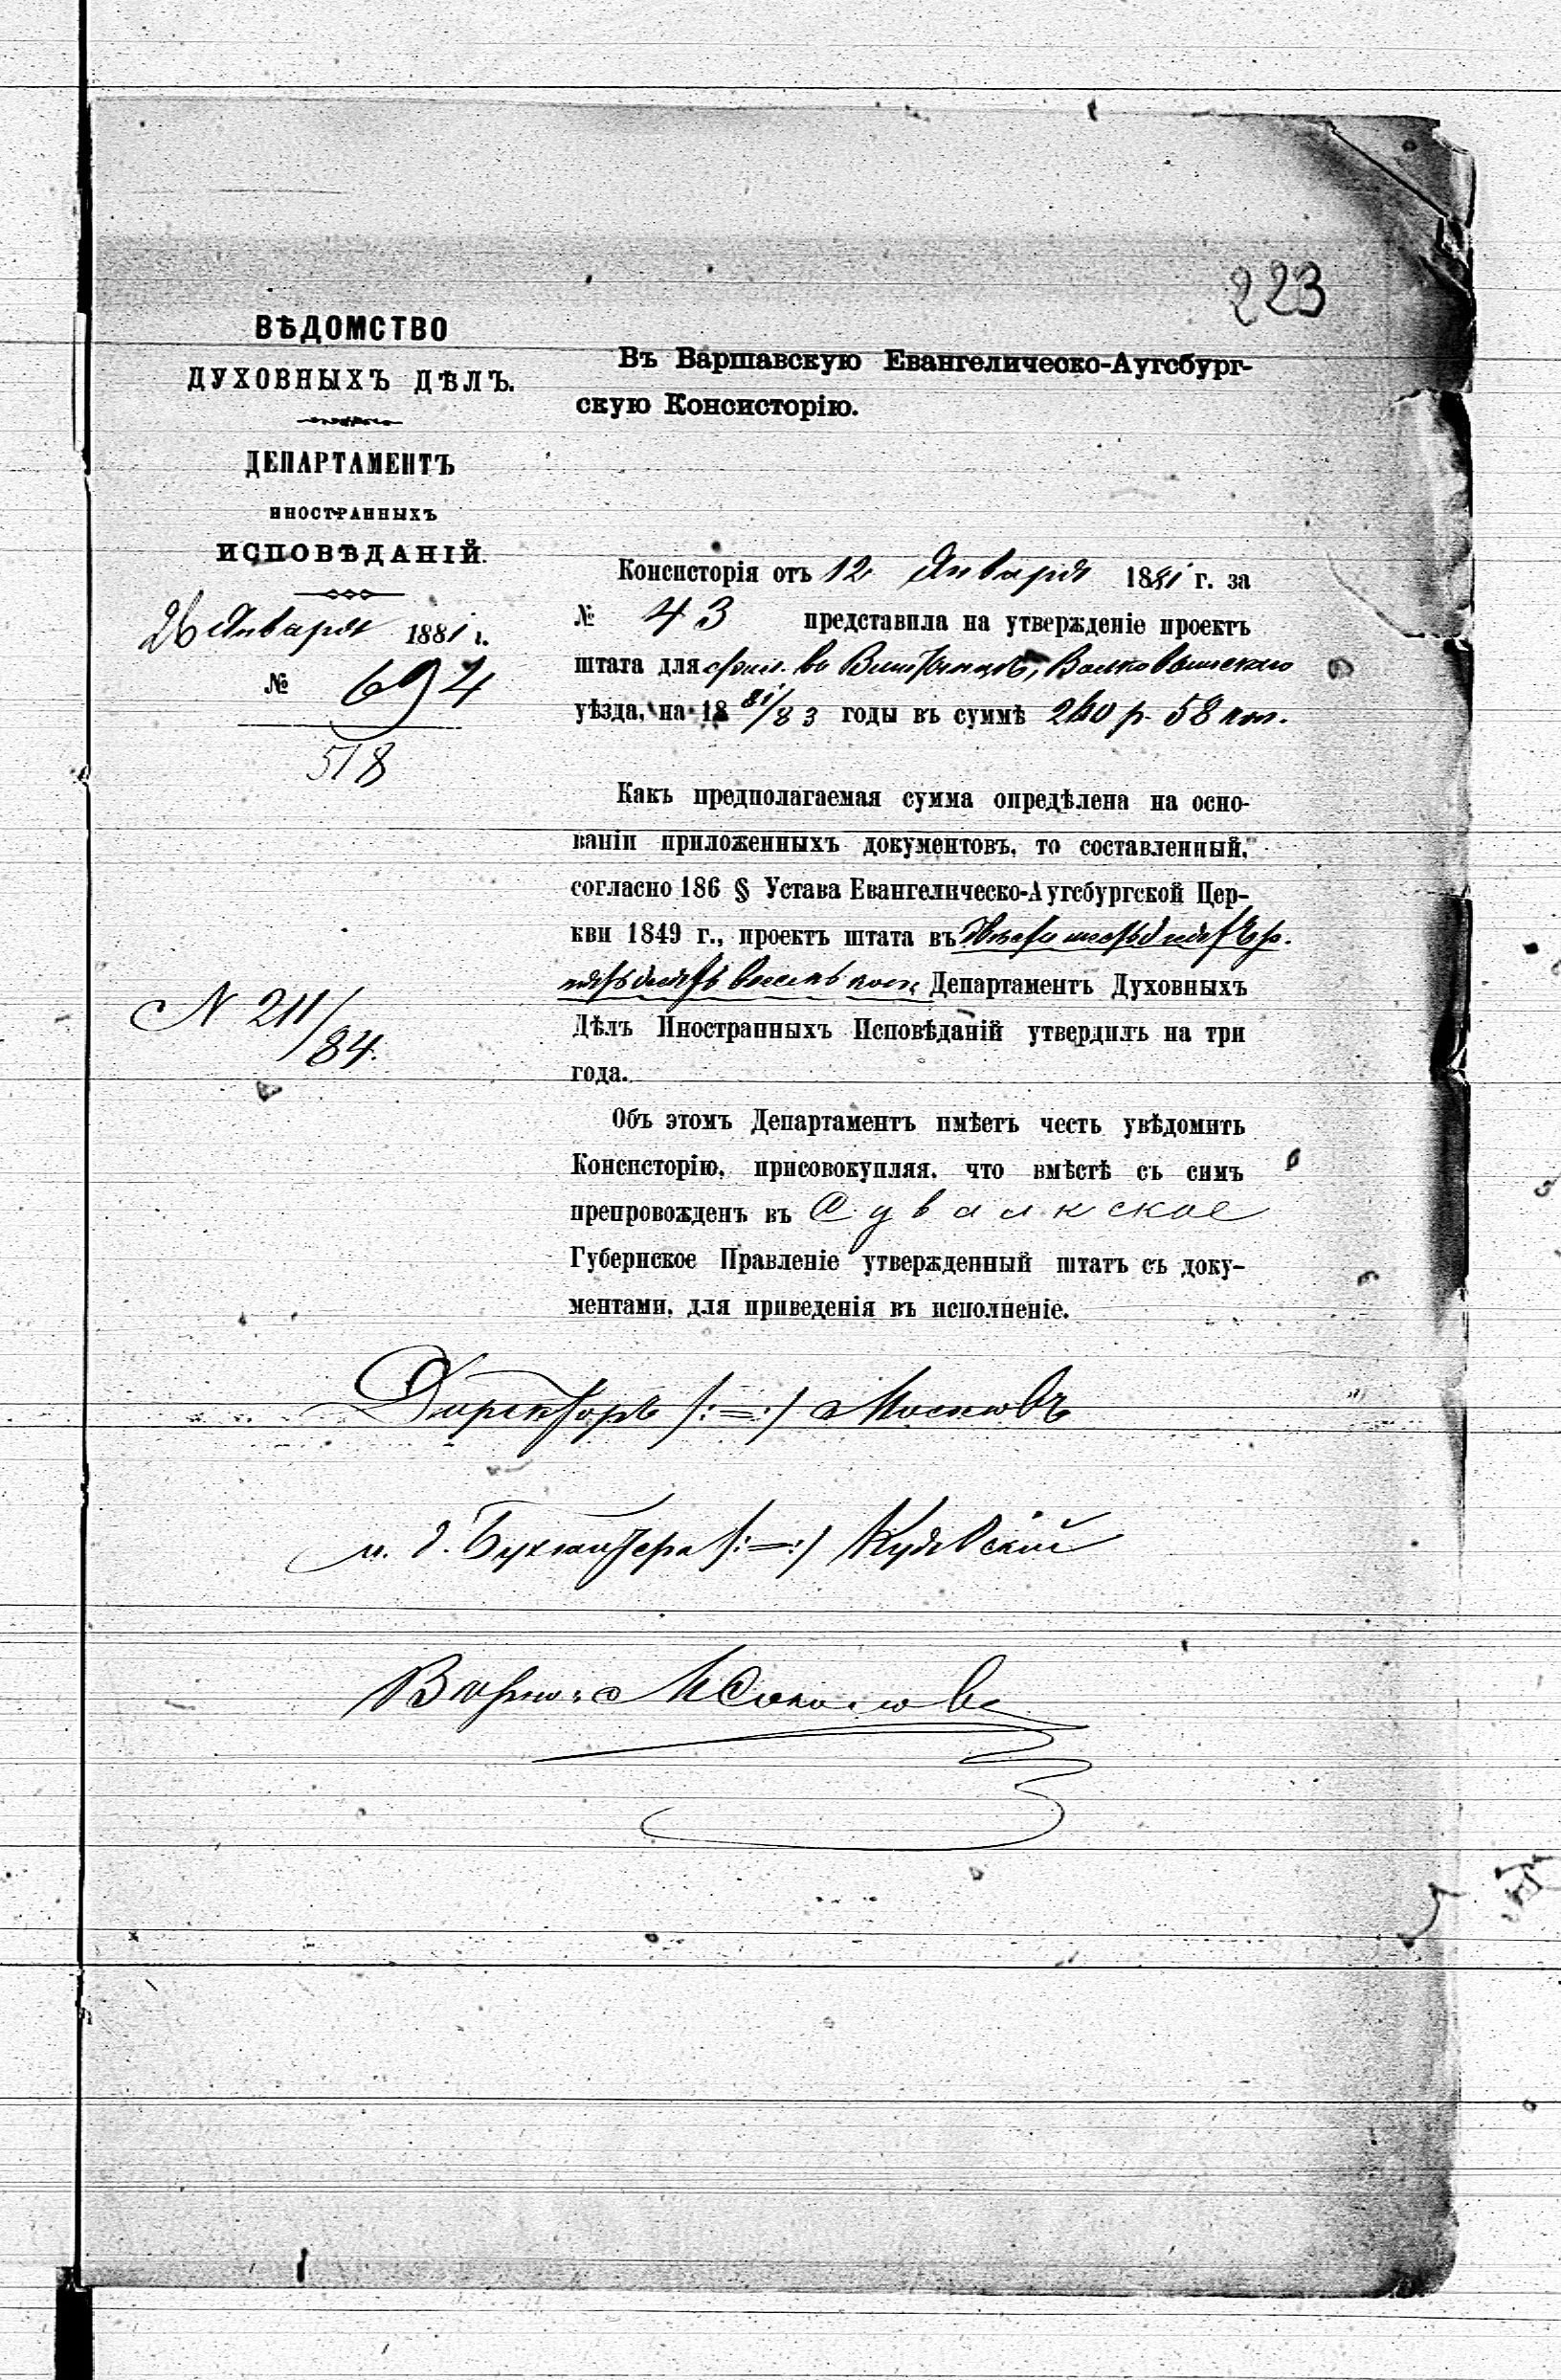 223
ВѢДОМСТВО
ДУХОВНЫХЪ ДѢЛЪ.
ДЕПАРТАМЕНТЪ
ИНОСТРАННЫХЪ
ИСПОВѢДАНІЙ.
26 Января 1881 г.
№ 694
518
N 211/84.
Въ Варшавскую Евангелическо-Аугсбург-
скую Консисторію.
Консисторія отъ 12 Января 1881 г. за
№ 43 представила на утвержденіе проектъ
штата для фил. въ Виштынцѣ, Волковышскаго
уѣзда, на 1881/83 годы въ суммѣ 260 р. 58 коп.
Какъ предполагаемая сумма опредѣлена на осно-
ваніи приложенныхъ документовъ, то составленный,
согласно 186 § Устава Евангелическо-Аугсбургской Цер-
кви 1849 г., проектъ штата въ двѣсти шестьдесятъ р.
пятьдесятъ восемь коп. Департаментъ Духовныхъ
Дѣлъ Иностранныхъ Исповѣданій утвердилъ на три
года.
Объ этомъ Департаментъ имѣетъ честь увѣдомить
Консисторію, присовокупляя, что вмѣстѣ съ симъ
препровожденъ въ Сувалкское
Губернское Правленіе утвержденный штатъ съ доку-
ментами, для приведенія въ исполненіе.
Директоръ /:=:/ Мосоловъ
и. д. Бухгалтера /:=:/ Куявскій
Вѣрно: Соколовъ